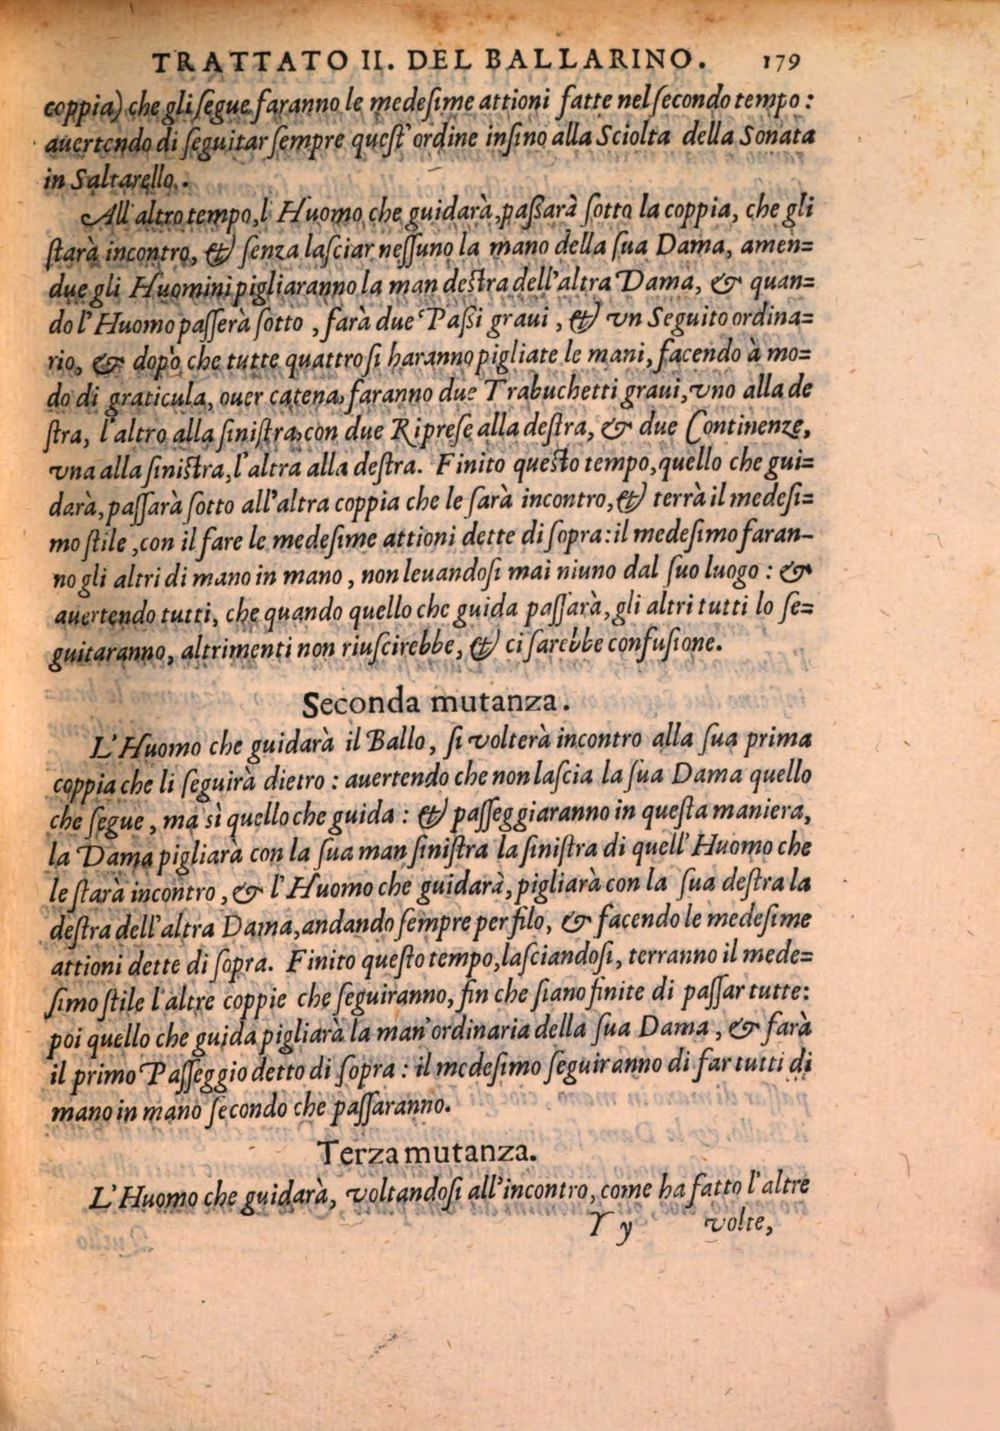 TRATTATO II. DEL BALLARINO. 179
coppia) che gli ſegue faranno le medeſime attioni fatte nel ſecondo tempo:
auertendo di ſeguitar ſempre queſt'ordine inſino alla Sciolta della Sonata
in Saltarello.
All'altro tempo, l'Huomo che guidarà, paſſarà ſotto la coppia, che gli
ſtarà incontro, & ſenza laſciar neſſuno la mano della ſua Dama, amen=
due gli Huomini pigliaranno la man deſtra dell'altra Dama, & quan=
do l'Huomo paſſerà ſotto, farà due Paſſi graui, & vn Seguito ordina=
rio, & dopò che tutte quattro ſi haranno pigliate le mani, facendo à mo=
do di graticula, ouer catena, faranno due Trabuchetti graui, vno alla de
ſtra, l'altro alla ſiniſtra, con due Ripreſe alla deſtra, & due Continenze,
vna alla ſiniſtra, l'altra alla deſtra. Finito queſto tempo, quello che gui=
darà, paſſarà ſotto all'altra coppia che le ſarà incontro, & terrà il medeſi=
mo ſtile, con il fare le medeſime attioni dette di ſopra: il medeſimo faran-
no gli altri di mano in mano, non leuandoſi mai niuno dal ſuo luogo: &
auertendo tutti, che quando quello che guida paſſarà, gli altri tutti lo ſe=
guitaranno, altrimenti non riuſcirebbe, & ci ſarebbe confuſione.
Seconda mutanza.
L'Huomo che guidarà il Ballo, ſi volterà incontro alla ſua prima
coppia che li ſeguirà dietro: auertendo che non laſcia la ſua Dama quello
che ſegue, ma sì quello che guida: & paſſeggiaranno in queſta maniera,
la Dama pigliarà con la ſua man ſiniſtra la ſiniſtra di quell'Huomo che
le ſtarà incontro, & l'Huomo che guidarà, pigliarà con la ſua deſtra la
deſtra dell'altra Dama, andando ſempre per filo, & facendo le medeſime
attioni dette di ſopra. Finito queſto tempo, laſciandoſi, terranno il mede=
ſimo ſtile l'altre coppie che ſeguiranno, fin che ſiano finite di paſſar tutte:
poi quello che guida pigliarà la man'ordinaria della ſua Dama, & farà
il primo Paſſeggio detto di ſopra: il medeſimo ſeguiranno di far tutti di
mano in mano ſecondo che paſſaranno.
Terza mutanza.
L'Huomo che guidarà, voltandoſi all'incontro, come ha fatto l'altre
Y y volte,